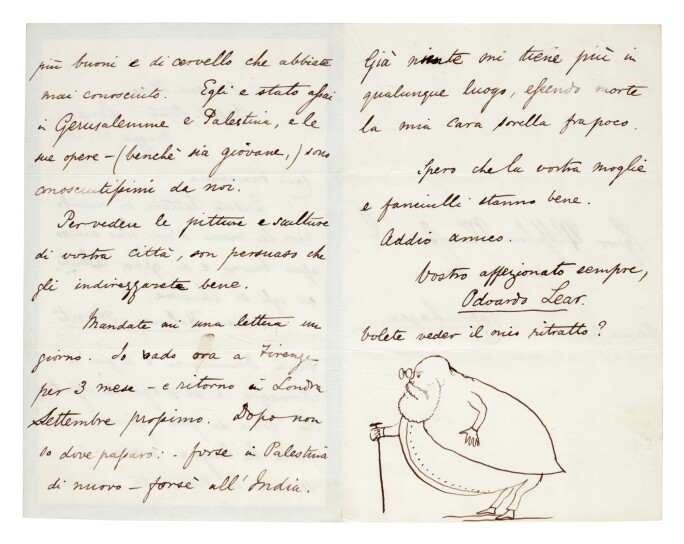 più buoni e di cervello che abbiate
mai conosciuto. Egli e stato assai
in Gerusalemme e Palestina, e le
sue opere – (benchè sia giovane,) sono
conosciutissimi da noi.
Per vedere le pitture e sculture
di vostra città, son persuaso che
gli indirezzarete bene.
Mandate mi una lettera un
giorno. Io vado ora a Firenze
per 3 mese – e ritorno in Londra
Settembre prossimo. Dopo non
so dove passarò: - forse in Palestina
di nuovo – forsè all' India.
Già niente mi tiene più in
qualunque luogo, essendo morte
la mia cara sorella fra poco.
Spero che la vostra moglie
e fanciulli stanno bene.
Addio amico.
Vostro affezionato sempre,
Odoardo Lear.
Volete veder il mio ritratto?